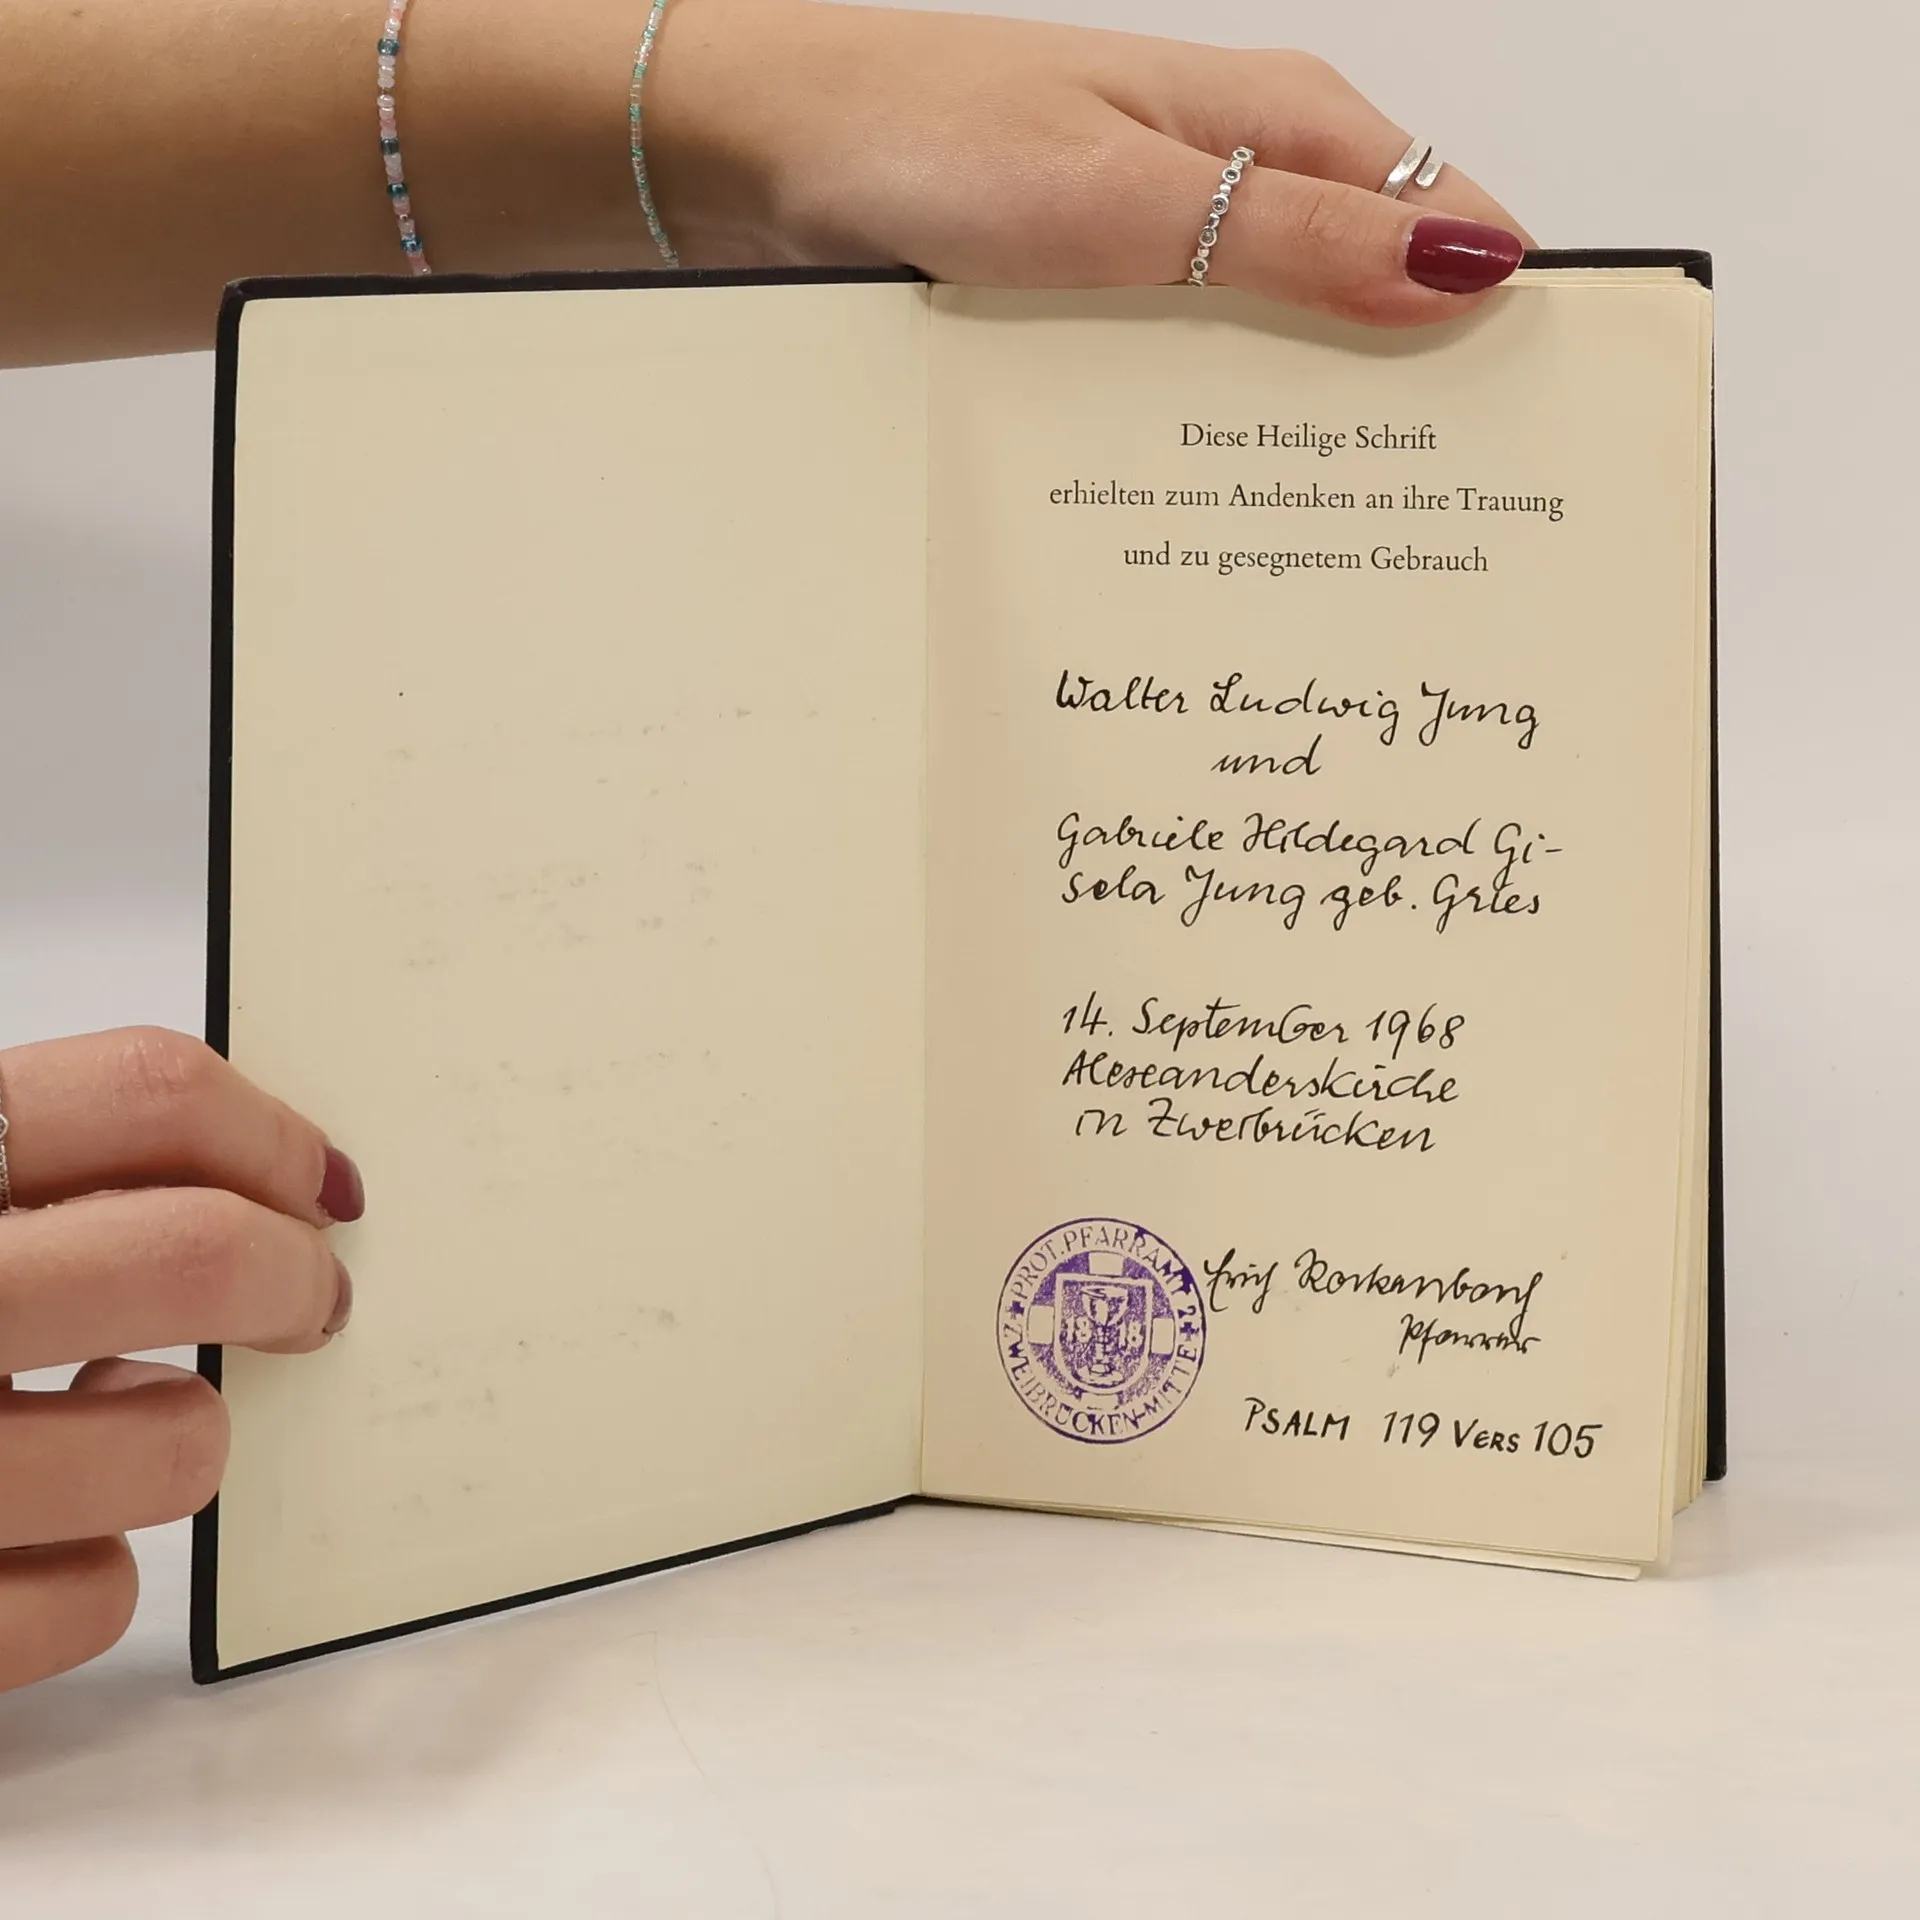 Diese Heilige Schrift
erhielten zum Andenken an ihre Trauung
und zu gesegnetem Gebrauch
Walter Ludwig Jung
und
Gabriele Hildegard Gi-
sela Jung geb. Gries
14. September 1968
Alexanderskirche
in Zweibrücken
PROT. PFARRAMT 2
ZWEIBRÜCKEN-MITTE
1818
Erich Rockenbach
Pfarrer
PSALM 119 VERS 105